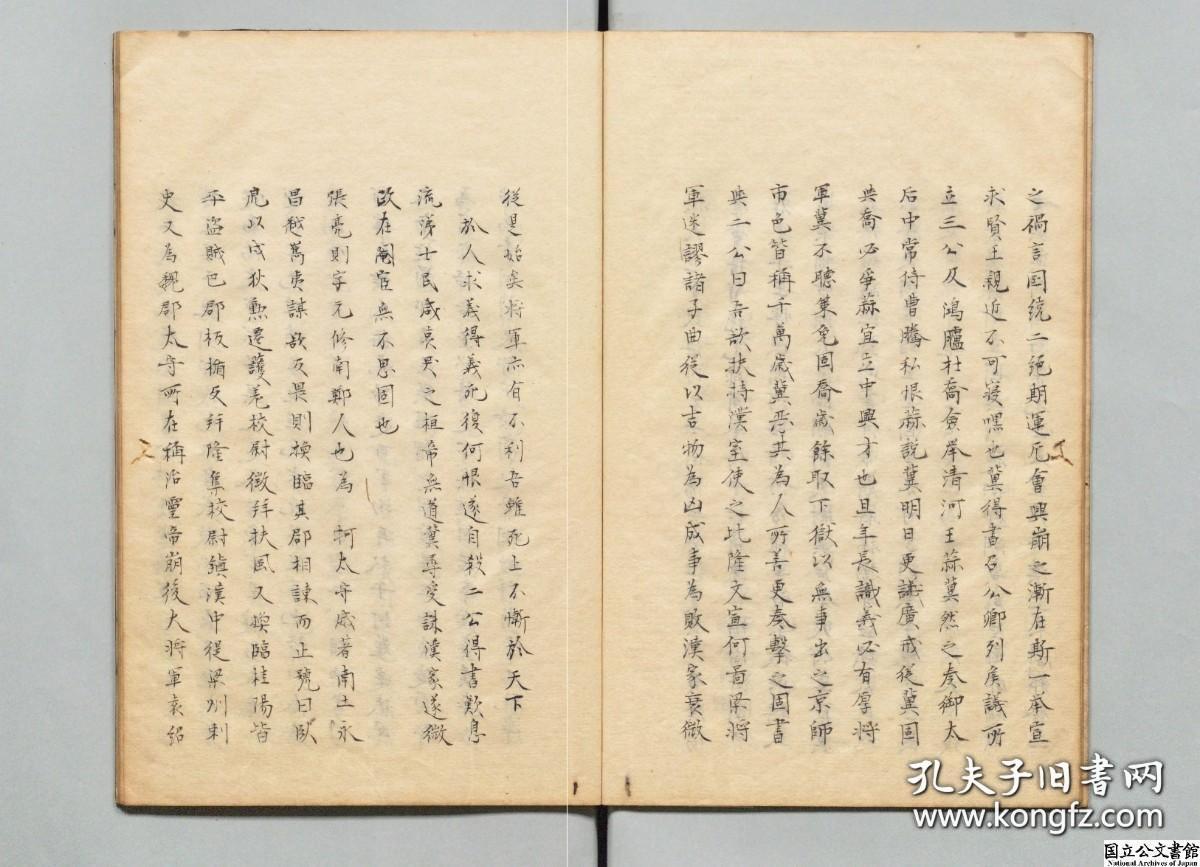 之禍言国统二绝期運厄會興崩之漸在斯一举宣
求賢王親近不可寝嘿也冀得書召公卿列侯議所
立三公及鴻臚杜喬僉举清河王蒜冀然之奏御太
后中常侍曹騰私恨蒜説冀明日更議廣戒從冀固
与喬必爭蒜宜立中興才也且年長識義必有厚将
軍冀不聽策免固喬歲餘取下獄以無事出之京師
市邑皆稱千萬歲冀惡其為人所善更奏擊之固書
與二公曰吾欲扶持漢室使之比隆文宣何啚梁将
軍迷謬諸子曲從以吉物為凶成事為敗漢家衰微
從是始矣将軍亦有不利吾雖死上不慚於天下
於人求義得義死復何恨遂自殺二公得書歎息
流涕士民咸哀哭之桓帝無道冀尋受誅漢家遂微
政在閹宦無不思固也
張亮則字元修南鄭人也為 牁太守威著南土永
昌越嶲夷謀欲反畏則換臨其郡相諫而止號曰臥
虎以戍狄勲遷護羌校尉徵拜扶風又換臨桂陽皆
平盜賊巴郡板楯反拜降集校尉鎮漢中從梁州刺
史又為魏郡太守所在稱治靈帝崩後大将軍袁紹
孔夫子旧书网
www.kongfz.com
国立公文書館
National Archives of Japan